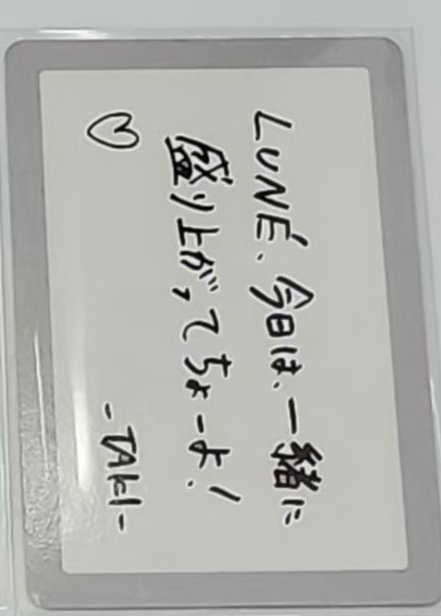 LUNÉ、今日は、一緒に
盛り上がってちょーよ！
♡ -TAKI-